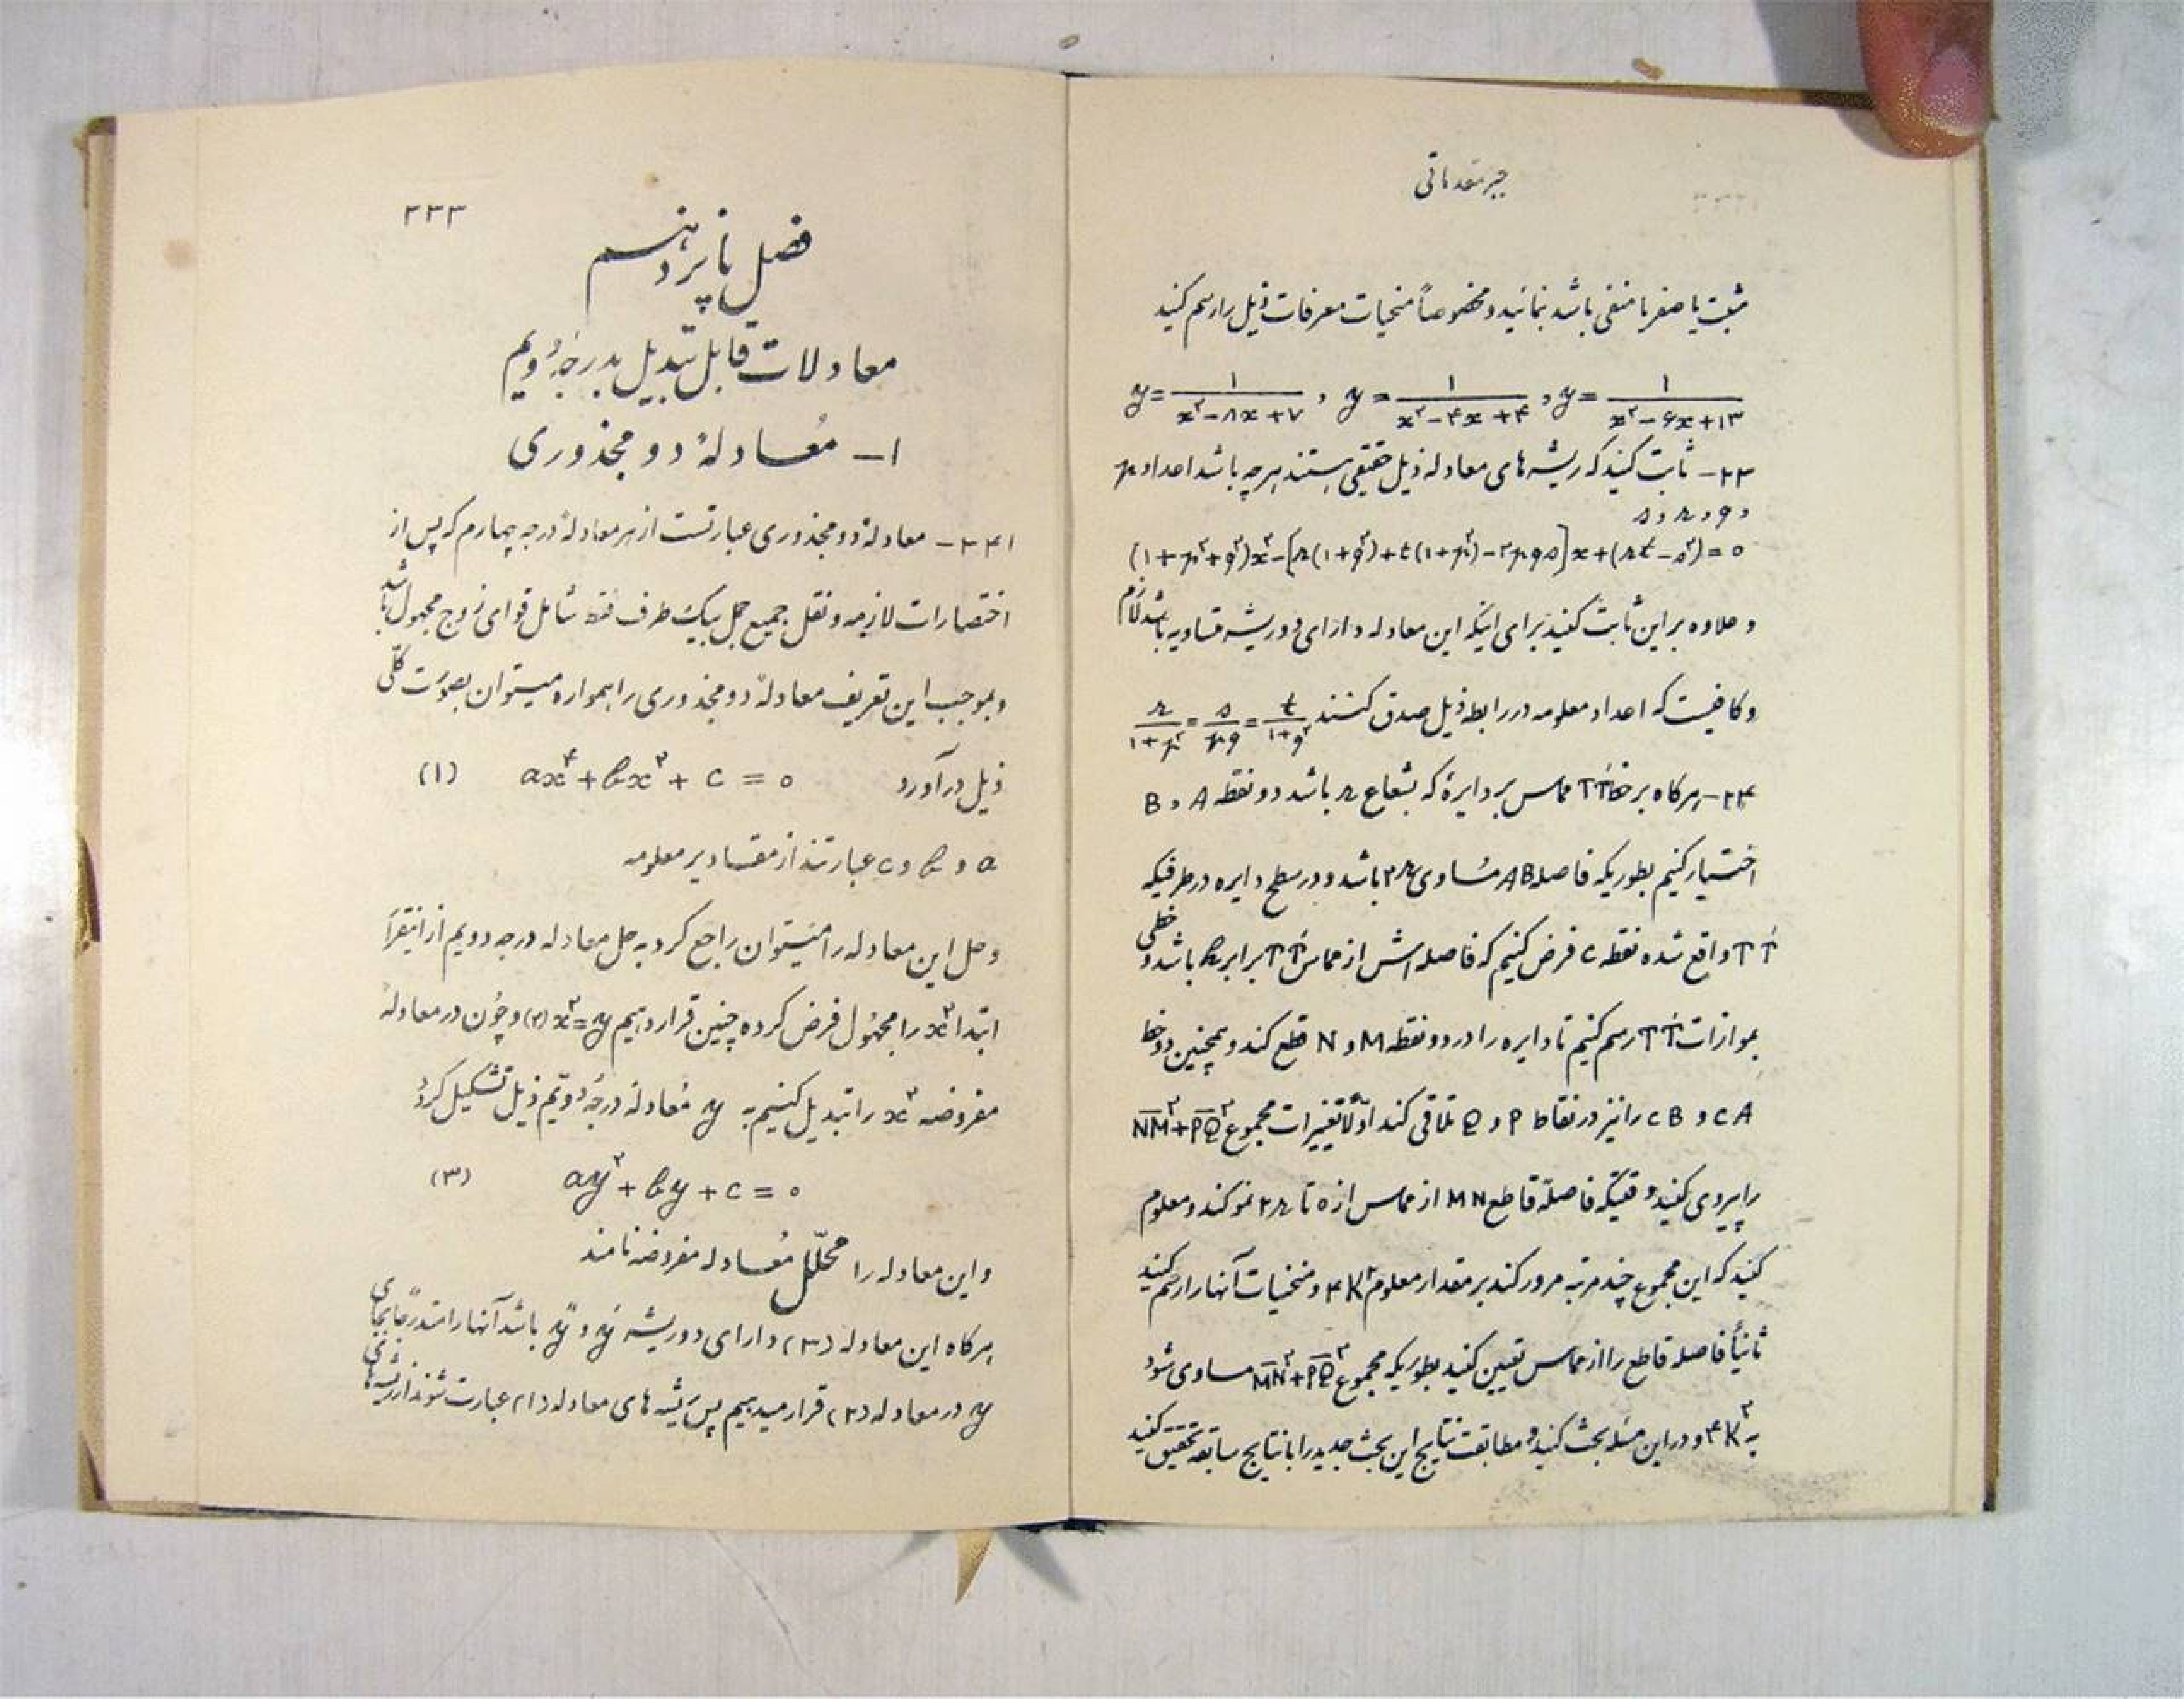 جبر مقدماتی
مثبت یا صفر یا منفی باشد بنمائید و مخصوصاً منحنیات معرفات ذیل را رسم کنید
y = ۱/(x²-۸x+۷) , y = ۱/(x²-۴x+۴) , y = ۱/(x²-۶x+۱۳)
۲۳- ثابت کنید که ریشه های معادله ذیل حقیقی هستند هر چه باشد اعداد p
و q و r و s
(۱+p²+q²)x²-[r(۱+q²)+t(۱+p²)-۲pqs]x+(rt-s²)=۰
و علاوه بر این ثابت کنید برای اینکه این معادله دارای دو ریشه متساویه باشد لازم
و کافیست که اعداد معلومه در رابطه ذیل صدق کنند r/(۱+p²) = s/pq = t/(۱+q²)
۲۴- هرگاه بر خط TT' مماس بر دایرهٔ که بشعاع r باشد دو نقطه A و B
اختیار کنیم بطوریکه فاصله AB مساوی ۲r باشد و در سطح دایره در طرفیکه
TT' واقع شده نقطه C فرض کنیم که فاصله اش از مماس TT' برابر h باشد و خطی
بموازات TT' رسم کنیم تا دایره را در دو نقطه M و N قطع کند و همچنین دو خط
CA و CB را نیز در نقاط P و Q تلاقی کند اولاً تغییرات مجموع NM²+PQ²
را پیروی کنید وقتیکه فاصلهٔ قاطع MN از مماس از ۰ تا ۲r نمو کند و معلوم
کنید که این مجموع چند مرتبه مرور کند بر مقدار معلوم ۴K² و منحنیات آنها را رسم کنید
ثانیاً فاصله قاطع را از مماس تعیین کنید بطوریکه مجموع MN²+PQ² مساوی شود
به ۴K² و در این مسئله بحث کنید و مطابقت نتایج این بحث جدید را با نتایج سابقه تحقیق کنید
۲۳۳
فصل پانزدهم
معادلات قابل تبدیل بدرجهٔ دویم
۱- معادلهٔ دو مجذوری
۲۴۱- معادلهٔ دو مجذوری عبارتست از هر معادلهٔ درجه چهارم که پس از
اختصارات لازمه و نقل جمیع جمل بیک طرف فقط شامل قوای زوج مجهول باشد
و بموجب این تعریف معادلهٔ دو مجذوری را همواره میتوان بصورت کلّی
ذیل در آورد ax⁴+bx²+c=۰ (۱)
a و b و c عبارتند از مقادیر معلومه
و حل این معادله را میتوان راجع کرد به حل معادله درجه دویم از اینقرار
ابتدا x² را مجهول فرض کرده چنین قرار دهیم x²=y (۲) و چون در معادلهٔ
مفروضه x² را تبدیل کنیم به y معادلهٔ درجهٔ دویم ذیل تشکیل گردد
ay²+by+c=۰ (۳)
و این معادله را محلّل معادله مفروضه نامند
هرگاه این معادله (۳) دارای دو ریشه y' و y" باشد آنها را متدرجاً بجای
y در معادله (۲) قرار میدهیم پس ریشه های معادله (۱) عبارت شوند از ریشه های